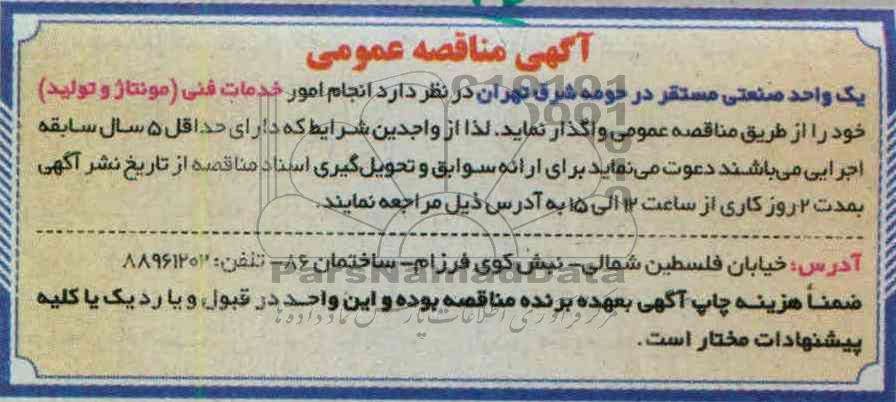 آگهی مناقصه عمومی
یک واحد صنعتی مستقر در حومه شرق تهران در نظر دارد انجام امور خدمات فنی (مونتاژ و تولید)
خود را از طریق مناقصه عمومی واگذار نماید. لذا از واجدین شرایط که دارای حداقل ۵ سال سابقه
اجرایی می‌باشند دعوت می‌نماید برای ارائه سوابق و تحویل‌گیری اسناد مناقصه از تاریخ نشر آگهی
بمدت ۲ روز کاری از ساعت ۱۲ الی ۱۵ به آدرس ذیل مراجعه نمایند.
آدرس: خیابان فلسطین شمالی- نبش کوی فرزام- ساختمان ۸۶- تلفن: ۸۸۹۶۱۲۰۲
ParsNamadData
ضمناً هزینه چاپ آگهی بعهده برنده مناقصه بوده و این واحد در قبول و یا رد یک یا کلیه
پیشنهادات مختار است.